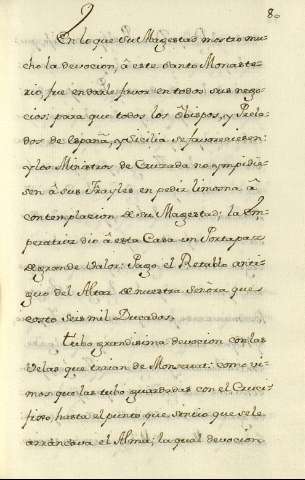 80
En lo que Su Magestad mostro mu-
cho la devocion, â este Santo Monaste-
rio, fue en darle favor en todos sus nego-
cios: para que todos los Obispos, y Prela-
dos de España, y Sicilia se favoreciesen:
y los Ministros de Cruzada no ympidie-
sen â sus Frayles en pedir limosna â
contemplacion de su Magestad; la Em-
peratriz dio â esta Casa un Portapaz
de grande valor: Pago el Retablo anti-
guo del Altar de nuestra Señora que
costo seis mil Ducados,
tubo grandisima devocion con las
velas que traian de Monserrat: como vi-
mos que las tubo guardadas con el Cruci-
fixo, hasta el punto que sintio que se le
arrancava el Alma; la qual devocion